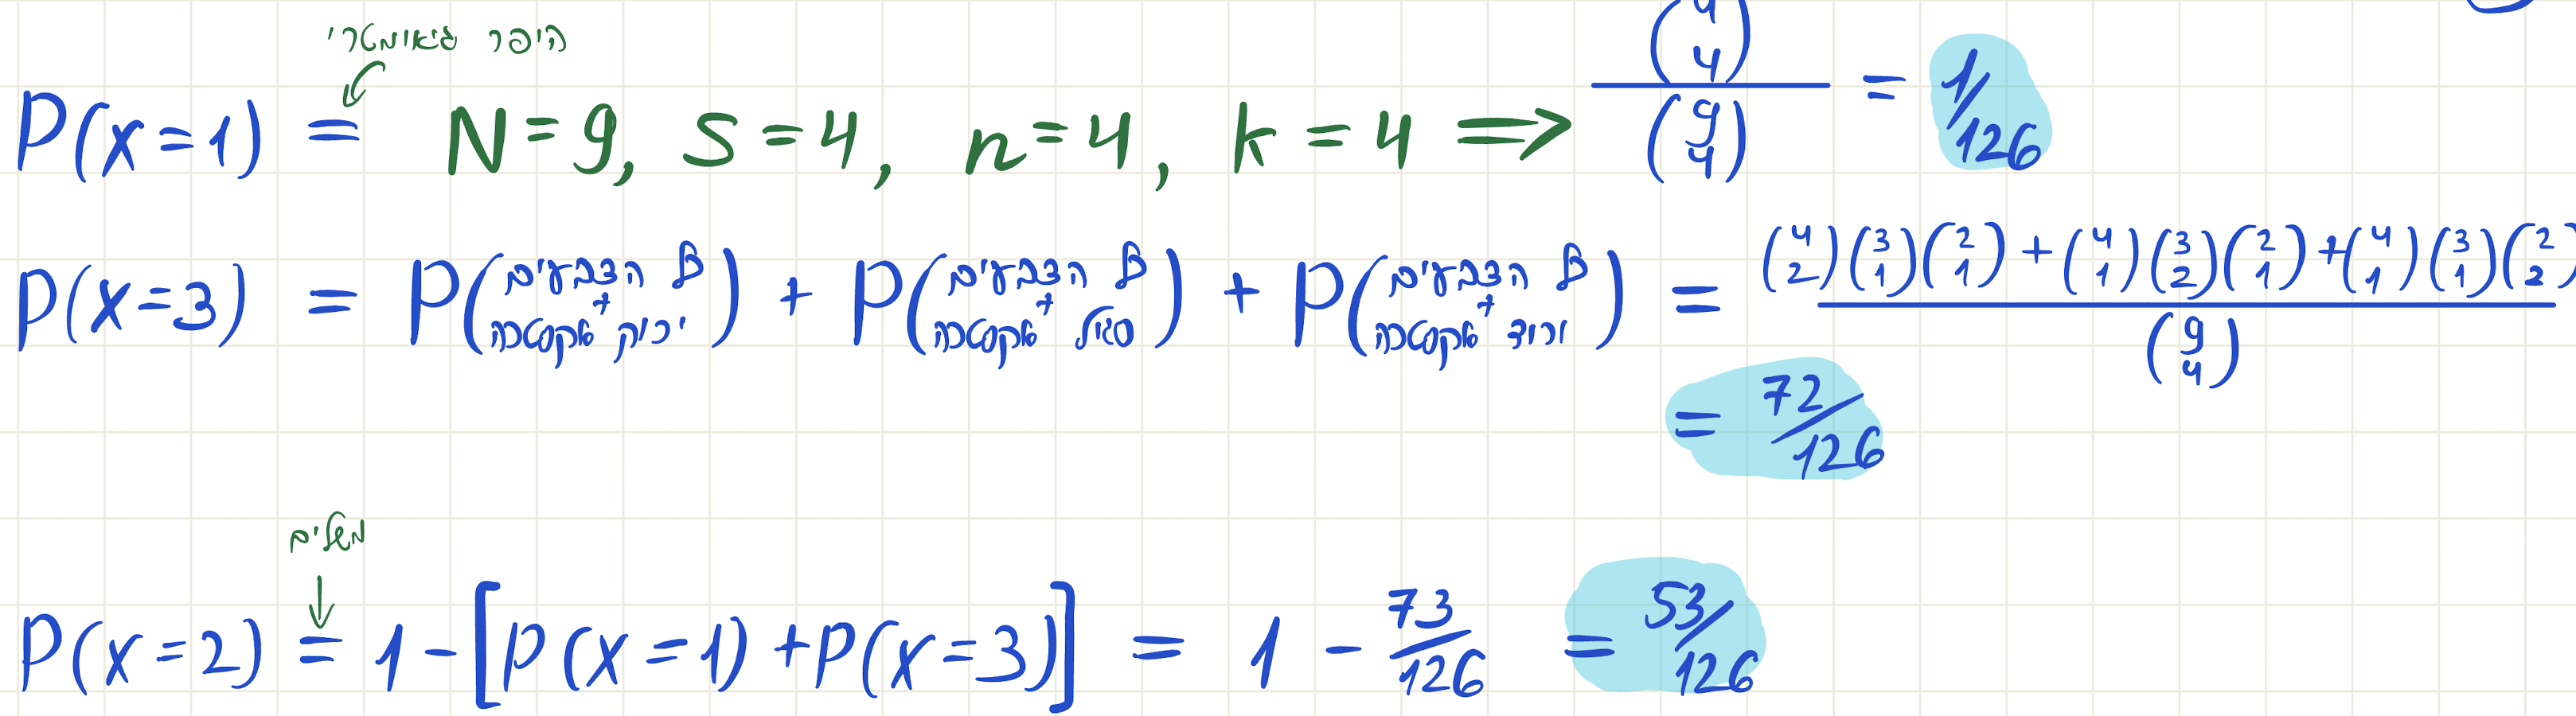 היפר גיאומטרי
P(x=1) = N=9, S=4, n=4, k=4 ⟹ (4 4)/(9 4) = 1/126
P(x=3) = P(כל הצבעים + ירוק אקסטרה) + P(כל הצבעים + סגול אקסטרה) + P(כל הצבעים + ורוד אקסטרה) = ((4 2)(3 1)(2 1) + (4 1)(3 2)(2 1) + (4 1)(3 1)(2 2))/(9 4)
= 72/126
משלים
P(x=2) = 1 - [P(x=1) + P(x=3)] = 1 - 73/126 = 53/126